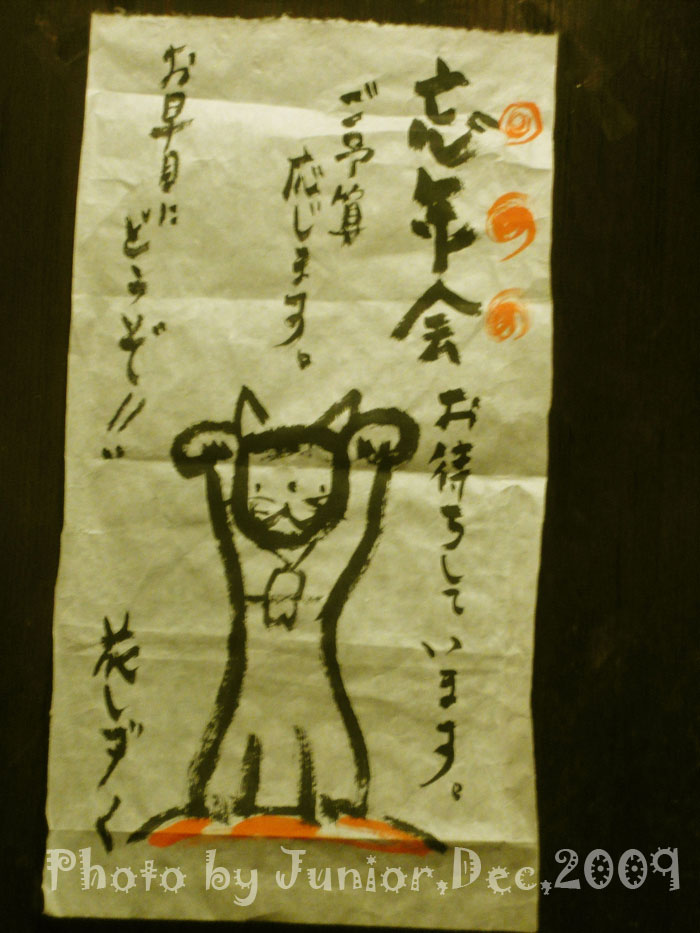 忘年会お待ちしています。
ご予算
応じます。
お早目に
どうぞ!!
花しずく
Photo by Junior,Dec,2009